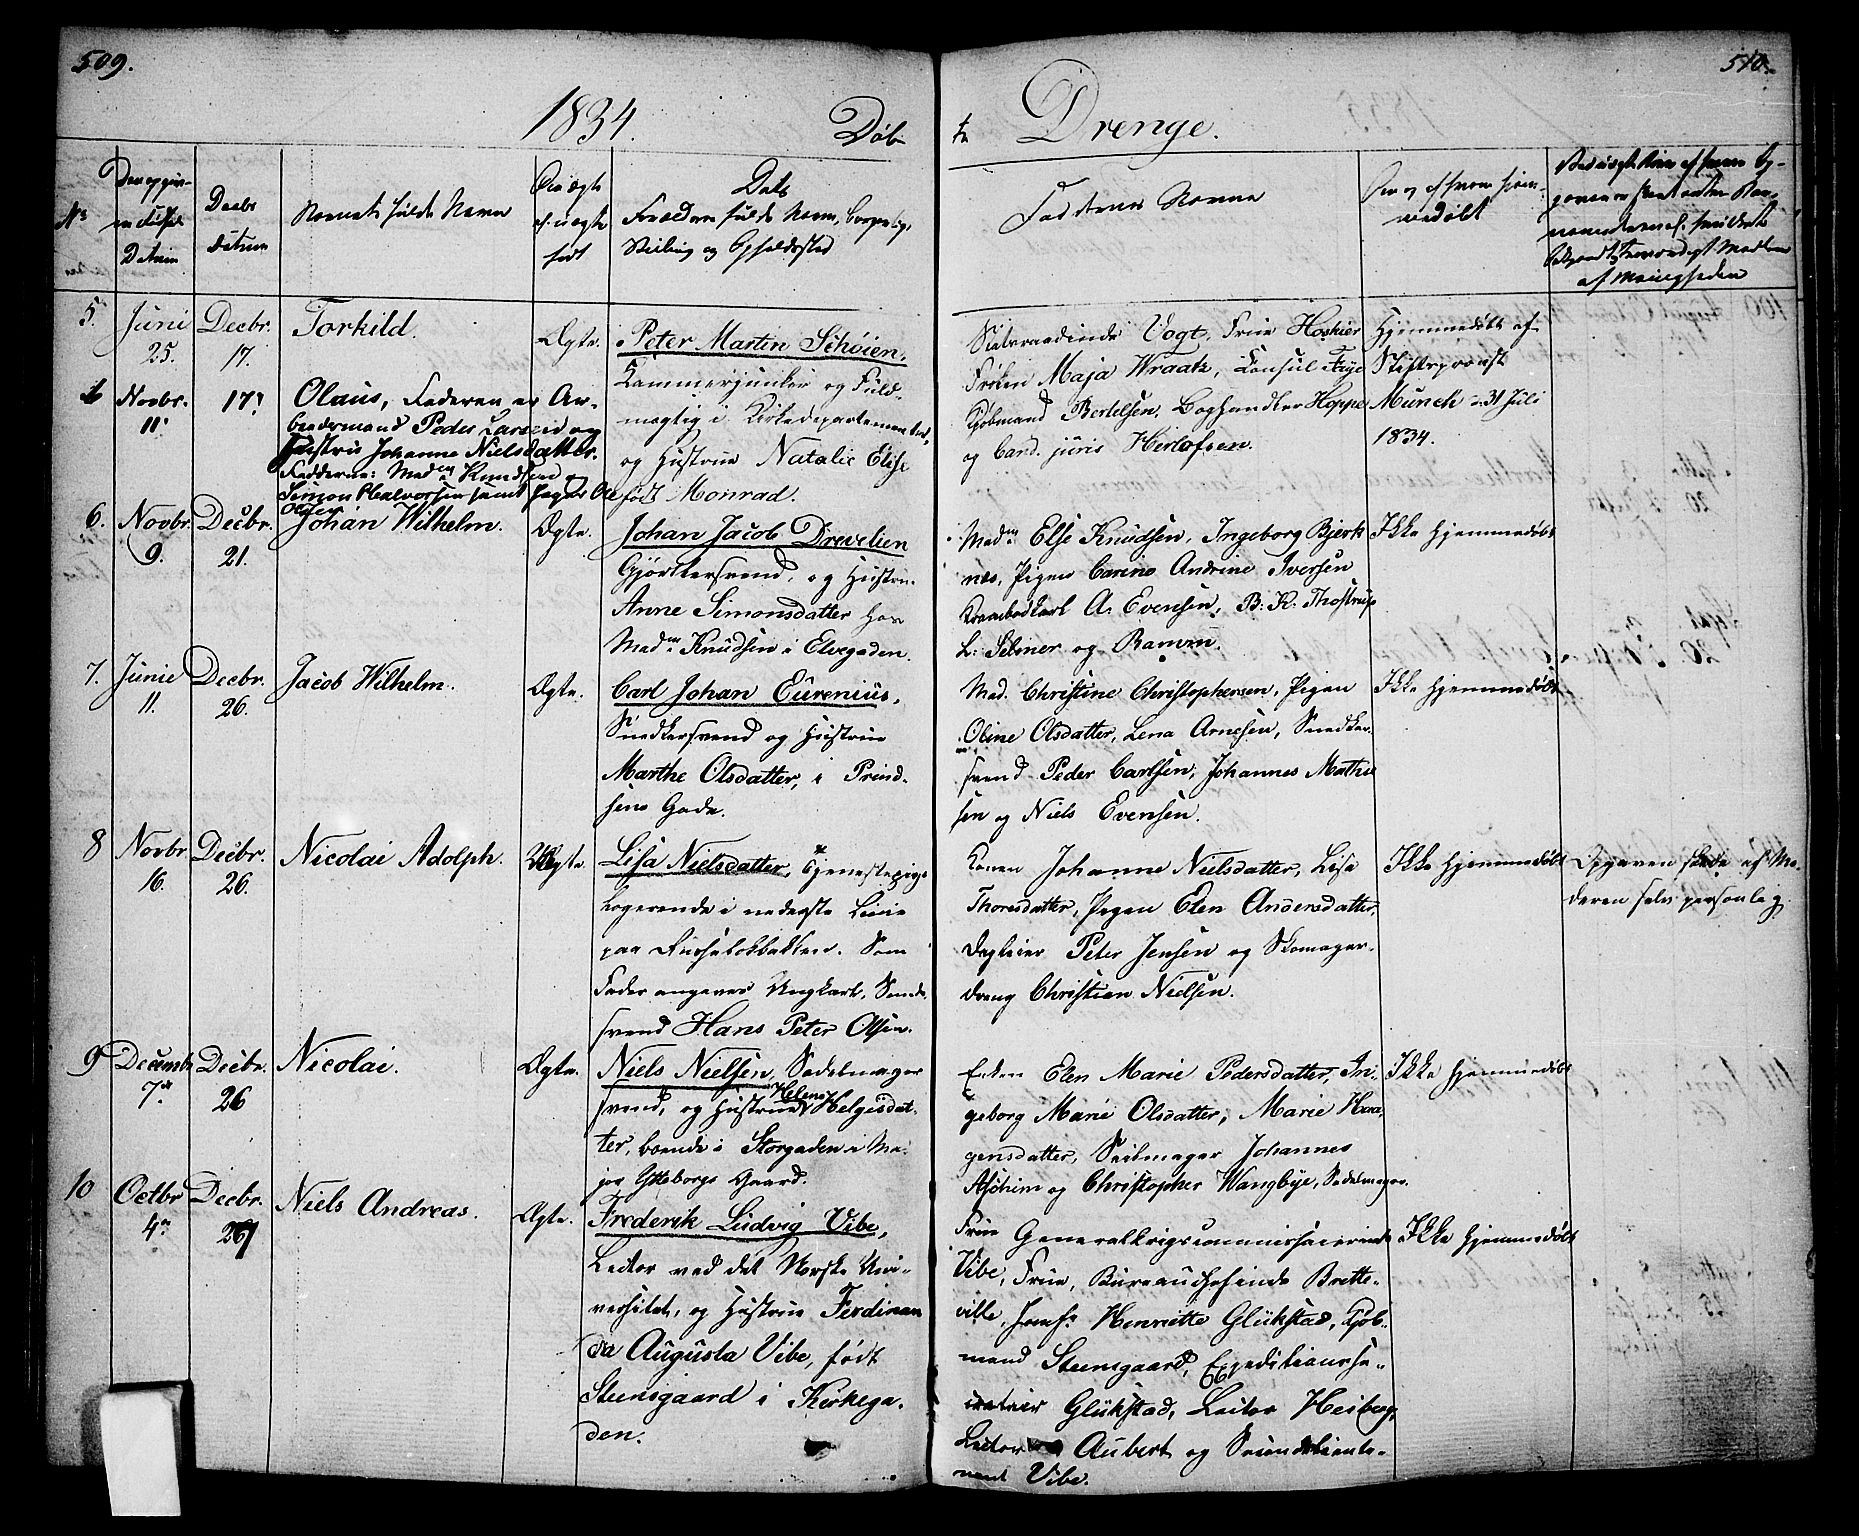 509.
510.
1834.
Døb-
te Drenge.
Nr
Datum
Decbr
Datum
Barnets fulde Navn
Om ægte
el. uægte
født
Dets
Forældres fulde Navn, borgerlige
Stilling og Opholdssted
Faddernes Navne
Om og af hvem hjem-
medøbt
af Menigheden
5.
Juni
25.
Decbr.
17.
Torkild.
Ægte.
Peter Martin Schøien,
Kammerjunker og Fuld-
mægtig i Kirkedepartementet,
og Hustrue Natalie Elise
født Monrad.
Statsraadinde Vogt, Frue Hoskier
Frøken Maja Wraatz, Consul Frye
Kjøbmand Bertelsen, Boghandler Hoppe
og Cand. juris Hertofsen.
Hjemmedøbt af
Stiftsprovst
Munch d. 31 Juli
1834.
Novbr.
11.
17.
Olaus, Faderen er Ar-
beidsmand Peder Larsen og
Hustru Johanne Nielsdatter.
Fadderne: Madm Knudsen,
Simon Halvorsen samt Jæger Ole
Olsen
6.
Novbr.
9.
Decbr.
21.
Johan Wilhelm.
Ægte.
Johan Jacob Drevelien
Gjørtlersvend, og Hustru
Anne Simonsdatter hos
Madm Knudsen i Elvegaden.
Madm Else Knudsen, Ingeborg Bjerk
næs, Pigen Carine Andrine Iversen
Krambodkarl A. Evensen, B. K. Thostrup
L. Selmer og Ramm.
Ikke hjemmedøbt
7.
Junie
11.
Decbr.
26.
Jacob Wilhelm.
Ægte.
Carl Johan Eurenius,
Snedkersvend og Hustrue
Marthe Olsdatter, i Prind-
sens Gade.
Mad. Christine Christophersen, Pigen
Oline Olsdatter, Lena Arnesen, Snedker-
svend Peder Carlsen, Johannes Mathie
sen og Niels Evensen.
Ikke hjemmedøbt
8
Novbr
16.
Decbr.
26.
Nicolai Adolph.
Uægte.
Lisa Nielsdatter, Tjenestepige
logerende i nederste Linie
paa Ruseløkbakken. Som
Fader angives Ungkarl, Smede
svend Hans Peter Olsen.
Konen Johanne Nielsdatter, Lisa
Thoresdatter, Pigen Elen Andersdatter,
Dagleier Peter Jensen og Skomager-
dreng Christian Nielsen.
Ikke hjemmedøbt
Opgaven skede af Mo-
deren selv personlig.
9
Decembr
7de
Decbr.
26
Nicolai.
Ægte.
Niels Nielsen, Sadelmager
svend, og Hustrue Helene Helgesdat-
ter, boende i Storgaden i Ma-
jor Gtteborgs Gaard.
Enken Elen Marie Pedersdatter, In-
geborg Marie Olsdatter, Marie Haa
gensdatter, Seilmager Johannes
Asøhim og Christopher Wangbye, Sadelmager.
Ikke hjemmedøbt
10
Octbr
4de
Decbr.
27
Niels Andreas.
Ægte.
Frederik Ludvig Vibe,
Lector ved det Norske Uni-
versitet, og Hustrue Ferdinan
da Augusta Vibe, født
Steensgaard i Kirkega-
den.
Frue Generalkrigscommissairinde
Vibe, Frue, Bureauchefinde Brette-
ville, Jomfr. Henriette Glückstad, Kjøb-
mand Steensgaard, Expeditionsse-
cretair Glückstad, Lector Heiberg,
Lector Aubert og Secondlieute-
nant Vibe.
Ikke hjemmedøbt